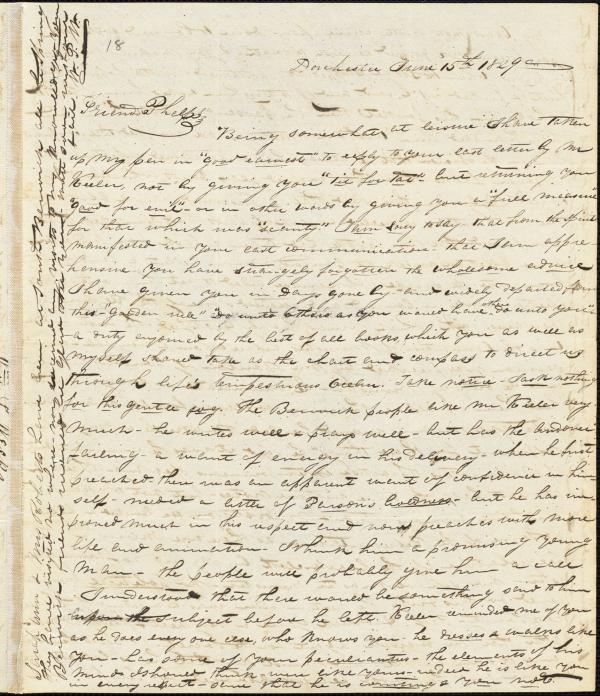 18
Dorchester June 15th 1829
Friend Phelps,
Being somewhat at leisure I have taken
up my pen in "good earnest" to reply to your last letter by Mr
Keeler, not by giving you "tit for tat" - but returning you
"good for evil" - or in other words by giving you a "full measure"
for that which was "scanty" I am sorry to say that from the spirit
manifested in your last communication that I am appre-
hensive you have strangely forgotten the wholesome advice
I have given you in days gone by - and widely departed from
this "golden rule" "do unto others as you would have others do unto you"
a duty enjoined by the best of all books which you as well as
myself should take as the chart and compass to direct us
through life's tempestuous Ocean. Take notice - I ask nothing
for this gentle jog. The Berwick people like Mr Keeler very
much - he writes well & prays well - but has the Andover
failing - a want of energy in his delivery - when he first
preached there was an apparent want of confidence in him-
self - needed a little of Parson's boldness - but he has im-
proved much in his respect and now preaches with more
life and animation - I think him a promising young
man - the people will probably give him a call
I understood that there would be something said to him
upon the subject before he left. Keeler reminded me of you
as he does every one else, who knows you - he dresses & walks like
you - has some of your peculiarities - the elements of his
mind I should think were like yours - indeed he is like you
in every respect - save that he is cunning & you not.